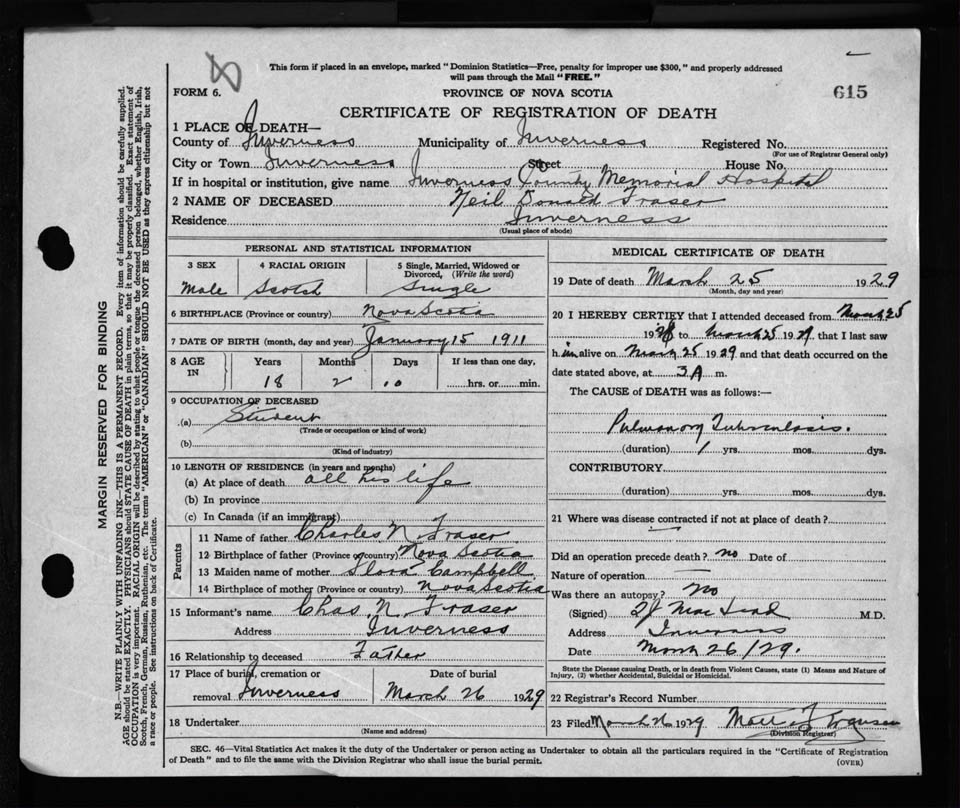 This form if placed in an envelope, marked "Dominion Statistics—Free, penalty for improper use $300," and properly addressed
will pass through the Mail "FREE."
FORM 6.
PROVINCE OF NOVA SCOTIA
615
CERTIFICATE OF REGISTRATION OF DEATH
1 PLACE OF DEATH—
County of Inverness Municipality of Inverness Registered No.
(For use of Registrar General only)
City or Town Inverness Street House No.
If in hospital or institution, give name Inverness County Memorial Hospital
2 NAME OF DECEASED Neil Donald Fraser
Residence Inverness
(Usual place of abode)
PERSONAL AND STATISTICAL INFORMATION
3 SEX 4 RACIAL ORIGIN 5 Single, Married, Widowed or
Divorced, (Write the word)
Male Scotch Single
6 BIRTHPLACE (Province or country) Nova Scotia
7 DATE OF BIRTH (month, day and year) January 15 1911
8 AGE IN Years Months Days If less than one day,
18 2 10 hrs. or min.
9 OCCUPATION OF DECEASED
(a) Student
(Trade or occupation or kind of work)
(b)
(Kind of industry)
10 LENGTH OF RESIDENCE (in years and months)
(a) At place of death all his life
(b) In province
(c) In Canada (if an immigrant)
Parents
11 Name of father Charles N. Fraser
12 Birthplace of father (Province or country) Nova Scotia
13 Maiden name of mother Flora Campbell
14 Birthplace of mother (Province or country) Nova Scotia
15 Informant's name Chas. N. Fraser
Address Inverness
16 Relationship to deceased Father
17 Place of burial, cremation or Date of burial
removal Inverness March 26 1929
18 Undertaker
(Name and address)
MEDICAL CERTIFICATE OF DEATH
19 Date of death March 25 1929
(Month, day and year)
20 I HEREBY CERTIFY that I attended deceased from March 25
1928 to March 25 1929, that I last saw
him alive on March 25 1929 and that death occurred on the
date stated above, at 3A m.
The CAUSE of DEATH was as follows:—
Pulmonary Tuberculosis.
(duration) 1 yrs. mos. dys.
CONTRIBUTORY
(duration) yrs. mos. dys.
21 Where was disease contracted if not at place of death?
Did an operation precede death? no Date of
Nature of operation —
Was there an autopsy? No
(Signed) M.D.
Address Inverness
Date March 26/29.
State the Disease causing Death, or in death from Violent Causes, state (1) Means and Nature of
Injury, (2) whether Accidental, Suicidal or Homicidal.
22 Registrar's Record Number
23 Filed March 26 1929
(Division Registrar)
SEC. 46—Vital Statistics Act makes it the duty of the Undertaker or person acting as Undertaker to obtain all the particulars required in the "Certificate of Registration
of Death" and to file the same with the Division Registrar who shall issue the burial permit.
(OVER)
MARGIN RESERVED FOR BINDING
N.B.—WRITE PLAINLY WITH UNFADING INK—THIS IS A PERMANENT RECORD. Every item of information should be carefully supplied.
AGE should be stated EXACTLY. PHYSICIANS should STATE CAUSE OF DEATH in plain terms, so that it may be properly classified. Exact statement of
OCCUPATION is very important. RACIAL ORIGIN will be described by stating to what people or tongue the deceased person belonged, whether English, Irish,
Scotch, French, German, Russian, Ruthenian, etc. The terms "AMERICAN" or "CANADIAN" SHOULD NOT BE USED as they express citizenship but not
a race or people. See instructions on back of Certificate.